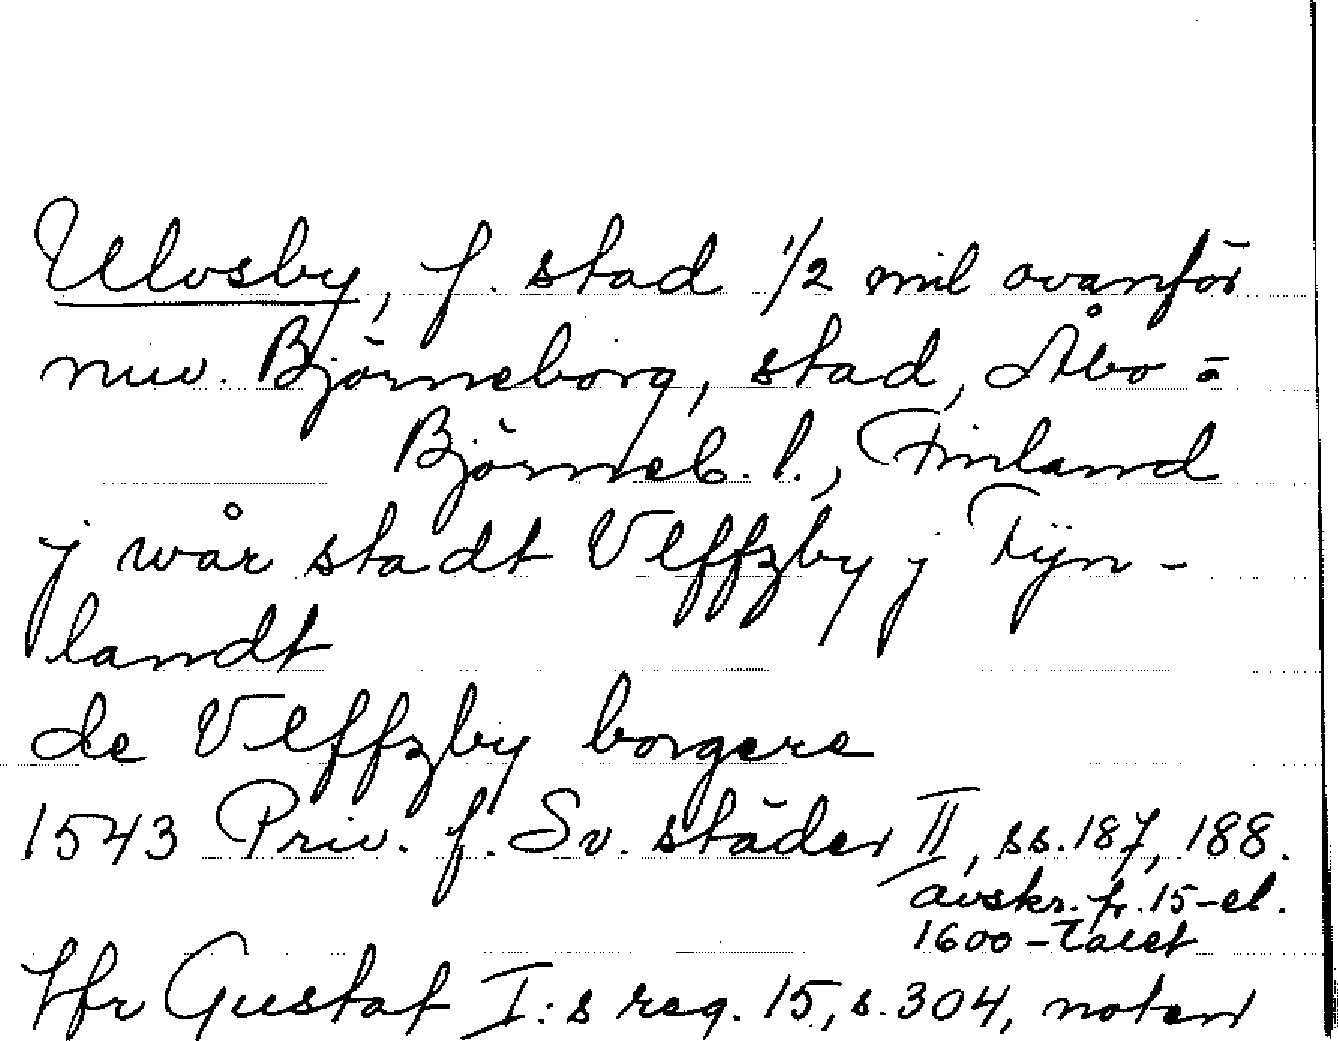 Ulvsby, f. stad 1/2 mil ovanför
nuv. Björneborg, stad, Åbo-
Björneb. l., Finland
j wår stadt Vlffzby j Fijn-
landt
de Vlffzby borgere
1543 Priv. f. Sv. städer II, ss. 187, 188.
avskr. fr. 15- el.
1600-talet
Jfr Gustaf I:s reg. 15, s. 304, noten